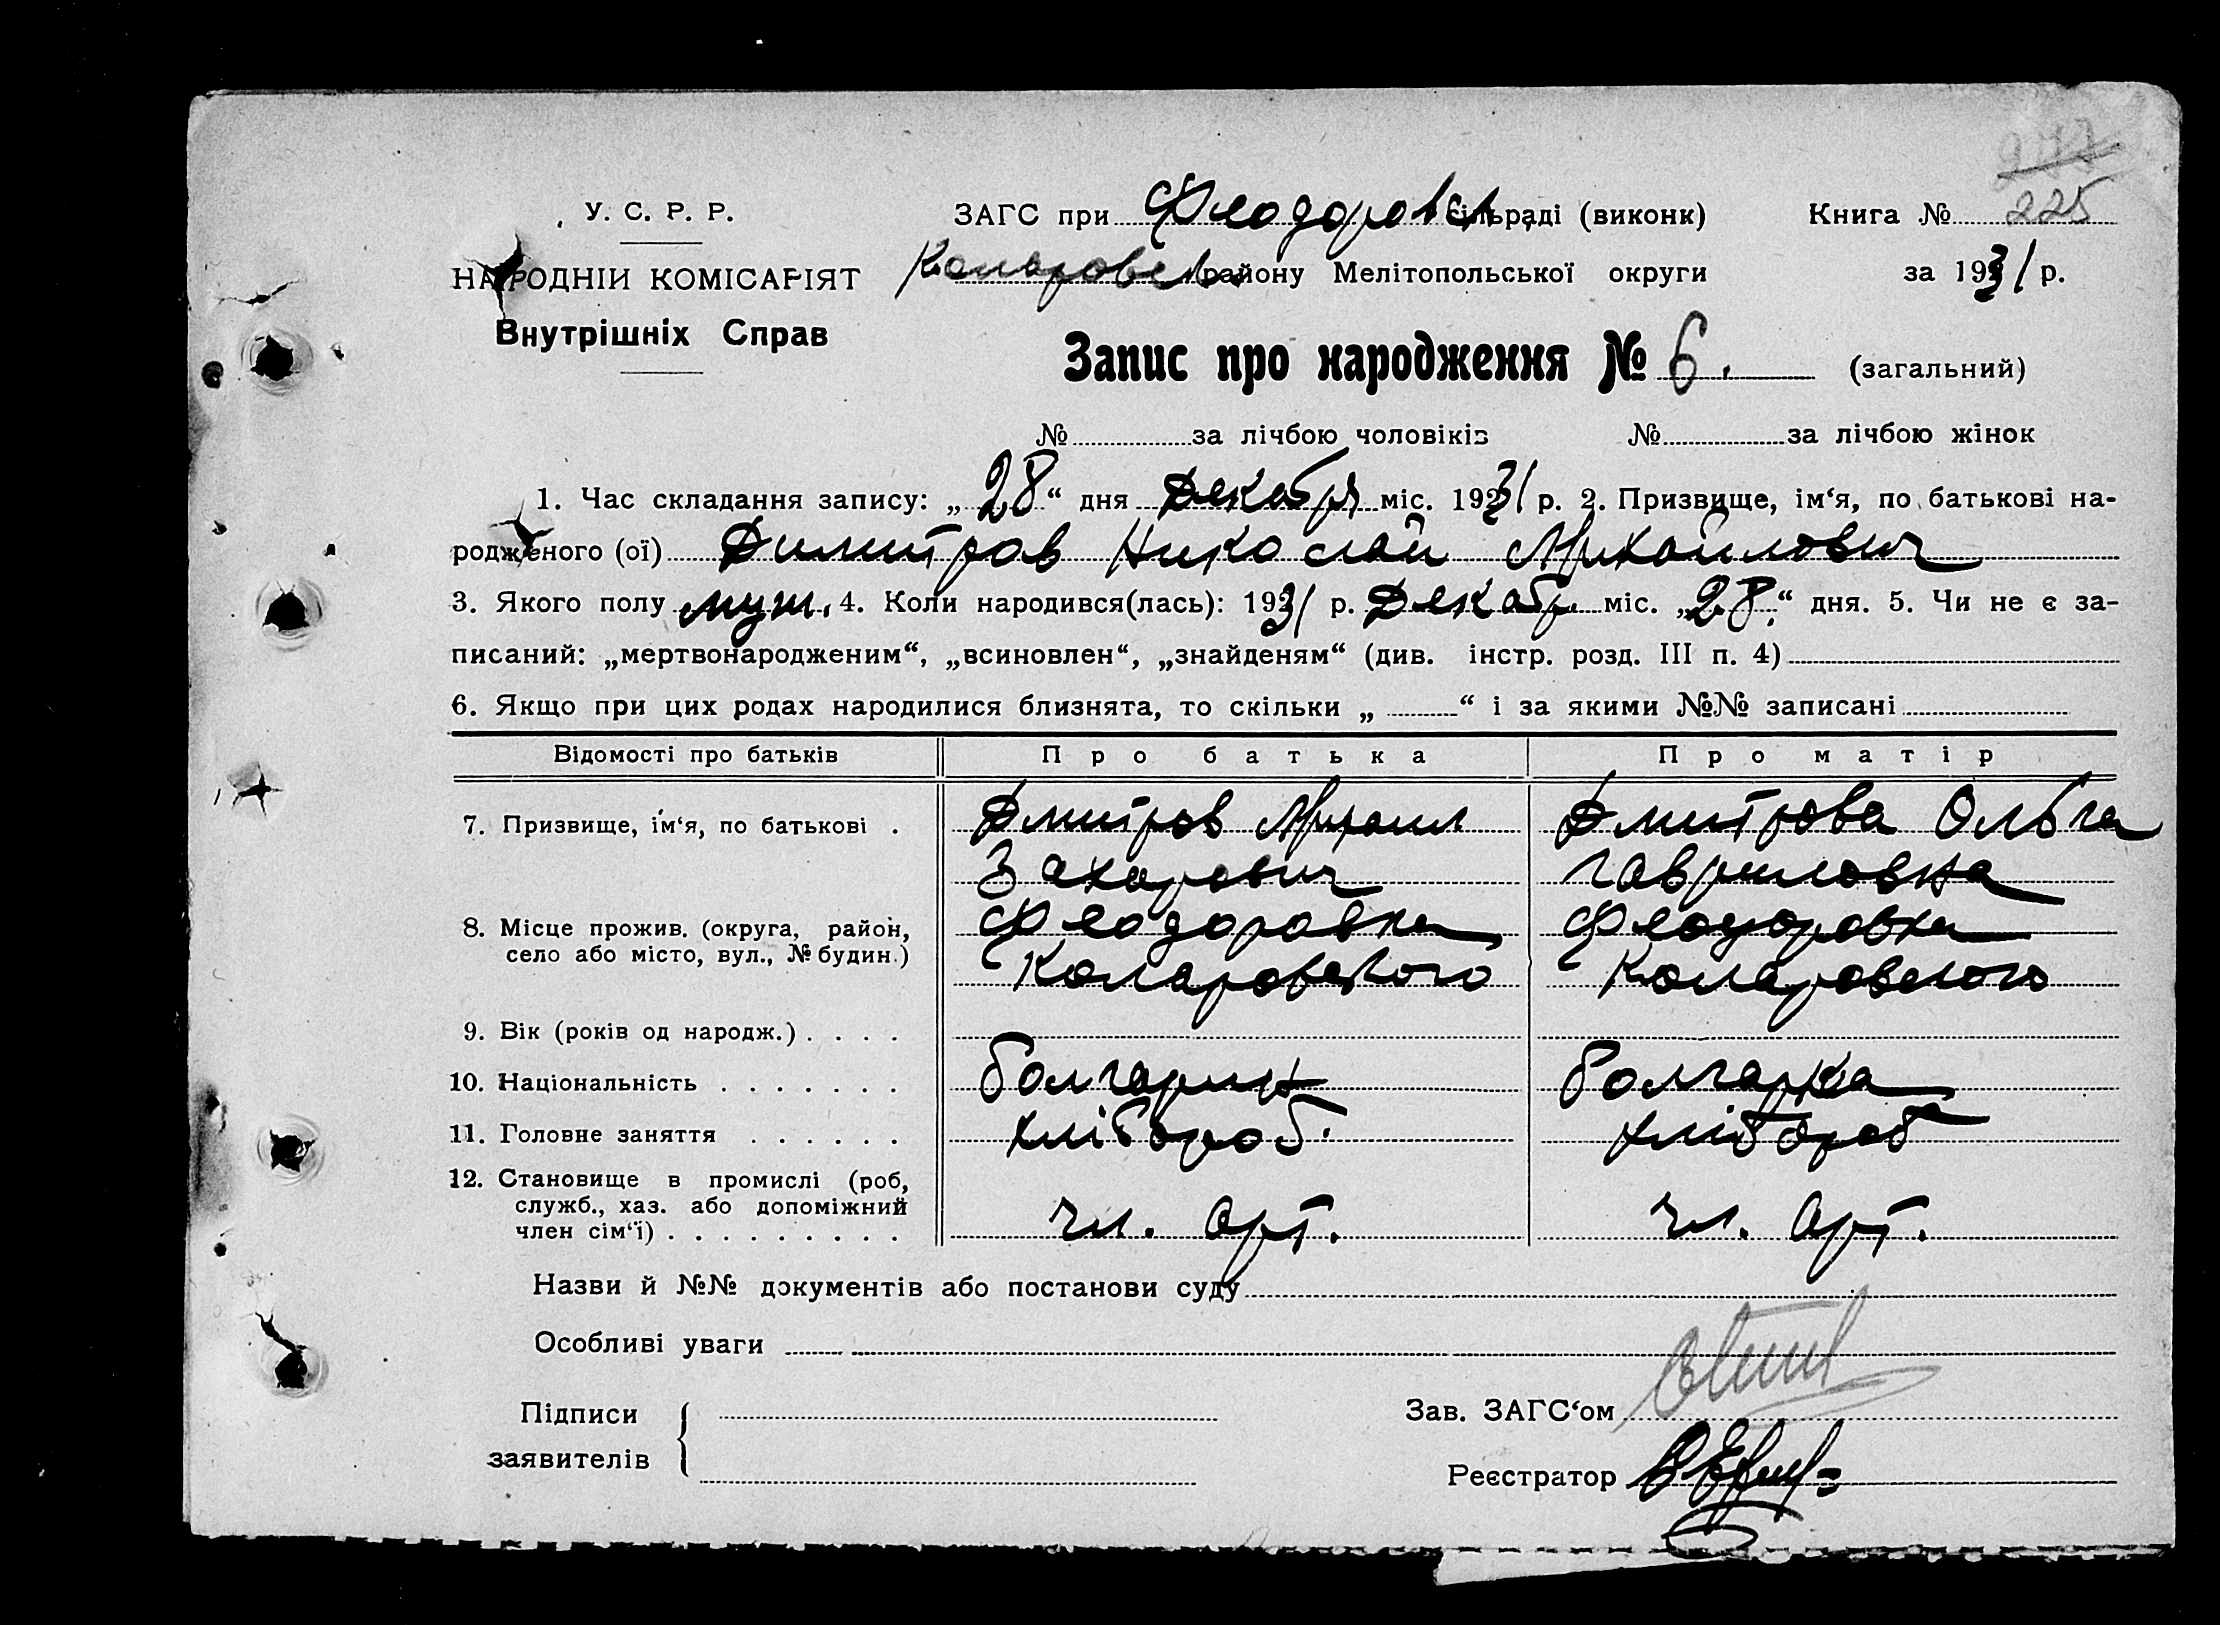 277
У. С. Р. Р. ЗАГС при Феодоровск. сільраді (виконк) Книга № 225
НАРОДНІЙ КОМІСАРІЯТ Коларовск. району Мелітопольської округи за 1931 р.
Внутрішніх Справ
Запис про народження № 6. (загальний)
№ за лічбою чоловіків № за лічбою жінок
1. Час складання запису: „28“ дня Декабря міс. 1931 р. 2. Призвище, ім‘я, по батькові на-
родженого (ої) Димитров Николай Михайлович
3. Якого полу муж. 4. Коли народився(лась): 1931 р. Декабр. міс. „28.“ дня. 5. Чи не є за-
писаний: „мертвонародженим“, „всиновлен“, „знайденям“ (див. інстр. розд. III п. 4)
6. Якщо при цих родах народилися близнята, то скільки „ “ і за якими №№ записані
Відомості про батьків Про батька Про матір
7. Призвище, ім‘я, по батькові . Дмитров Михаил Дмитрова Ольга
Захарович Гавриловна
8. Місце прожив. (округа, район, Феодоровка Феодоровка
село або місто, вул., № будин.) Коларовского Коларовского
9. Вік (років од народж.) . . . .
10. Національність . . . . . . . болгарин болгарка
11. Головне заняття . . . . . . хлібороб. хлібороб
12. Становище в промислі (роб,
служб., хаз. або допоміжний чл. арт. чл. арт.
член сім‘ї) . . . . . . . . .
Назви й №№ документів або постанови суду
Особливі уваги
Підписи Зав. ЗАГС‘ом
заявителів Реєстратор